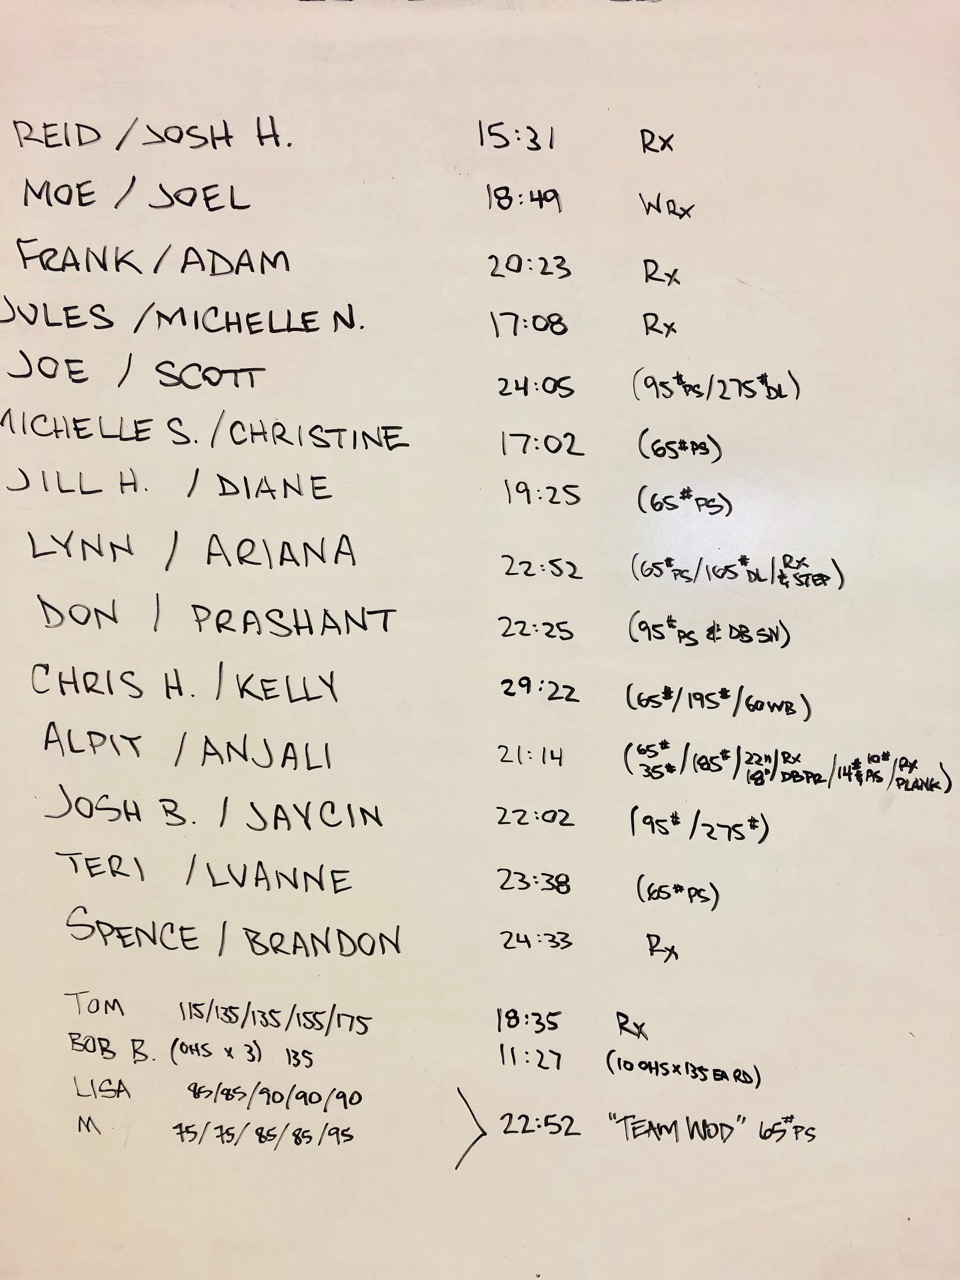 REID / JOSH H. 15:31 Rx
MOE / JOEL 18:49 WRx
FRANK / ADAM 20:23 Rx
JULES / MICHELLE N. 17:08 Rx
JOE / SCOTT 24:05 (95# PS/275# DL)
MICHELLE S. / CHRISTINE 17:02 (65# PS)
JILL H. / DIANE 19:25 (65# PS)
LYNN / ARIANA 22:52 (65# PS/165# DL/Rx & STEP)
DON / PRASHANT 22:25 (95# PS & DB SN)
CHRIS H. / KELLY 29:22 (65#/195#/60 WB)
ALPIT / ANJALI 21:14 (65# 35#/185#/22" 18"/Rx DBPR/14# & 10# PS/Rx PLANK)
JOSH B. / JAYCIN 22:02 (95#/275#)
TERI / LUANNE 23:38 (65# PS)
SPENCE / BRANDON 24:33 Rx
TOM 115/135/135/155/175 18:35 Rx
BOB B. (OHS x 3) 135 11:27 (10 OHS x 135 EA RD)
LISA 85/85/90/90/90
M 75/75/85/85/95 22:52 "TEAM WOD" 65# PS